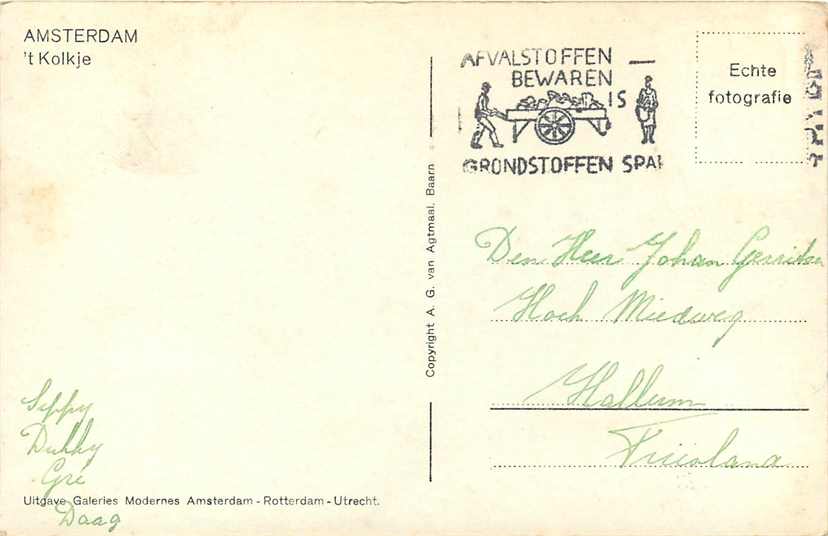 AMSTERDAM
't Kolkje
AFVALSTOFFEN
BEWAREN
IS
GRONDSTOFFEN SPA
Echte
fotografie
Copyright A. G. van Agtmaal, Baarn
Den Heer Johan Gerritsen
Hoch Miedweg
Hallum
Friesland
Seppy
Gré
Daag
Uitgave Galeries Modernes Amsterdam - Rotterdam - Utrecht.